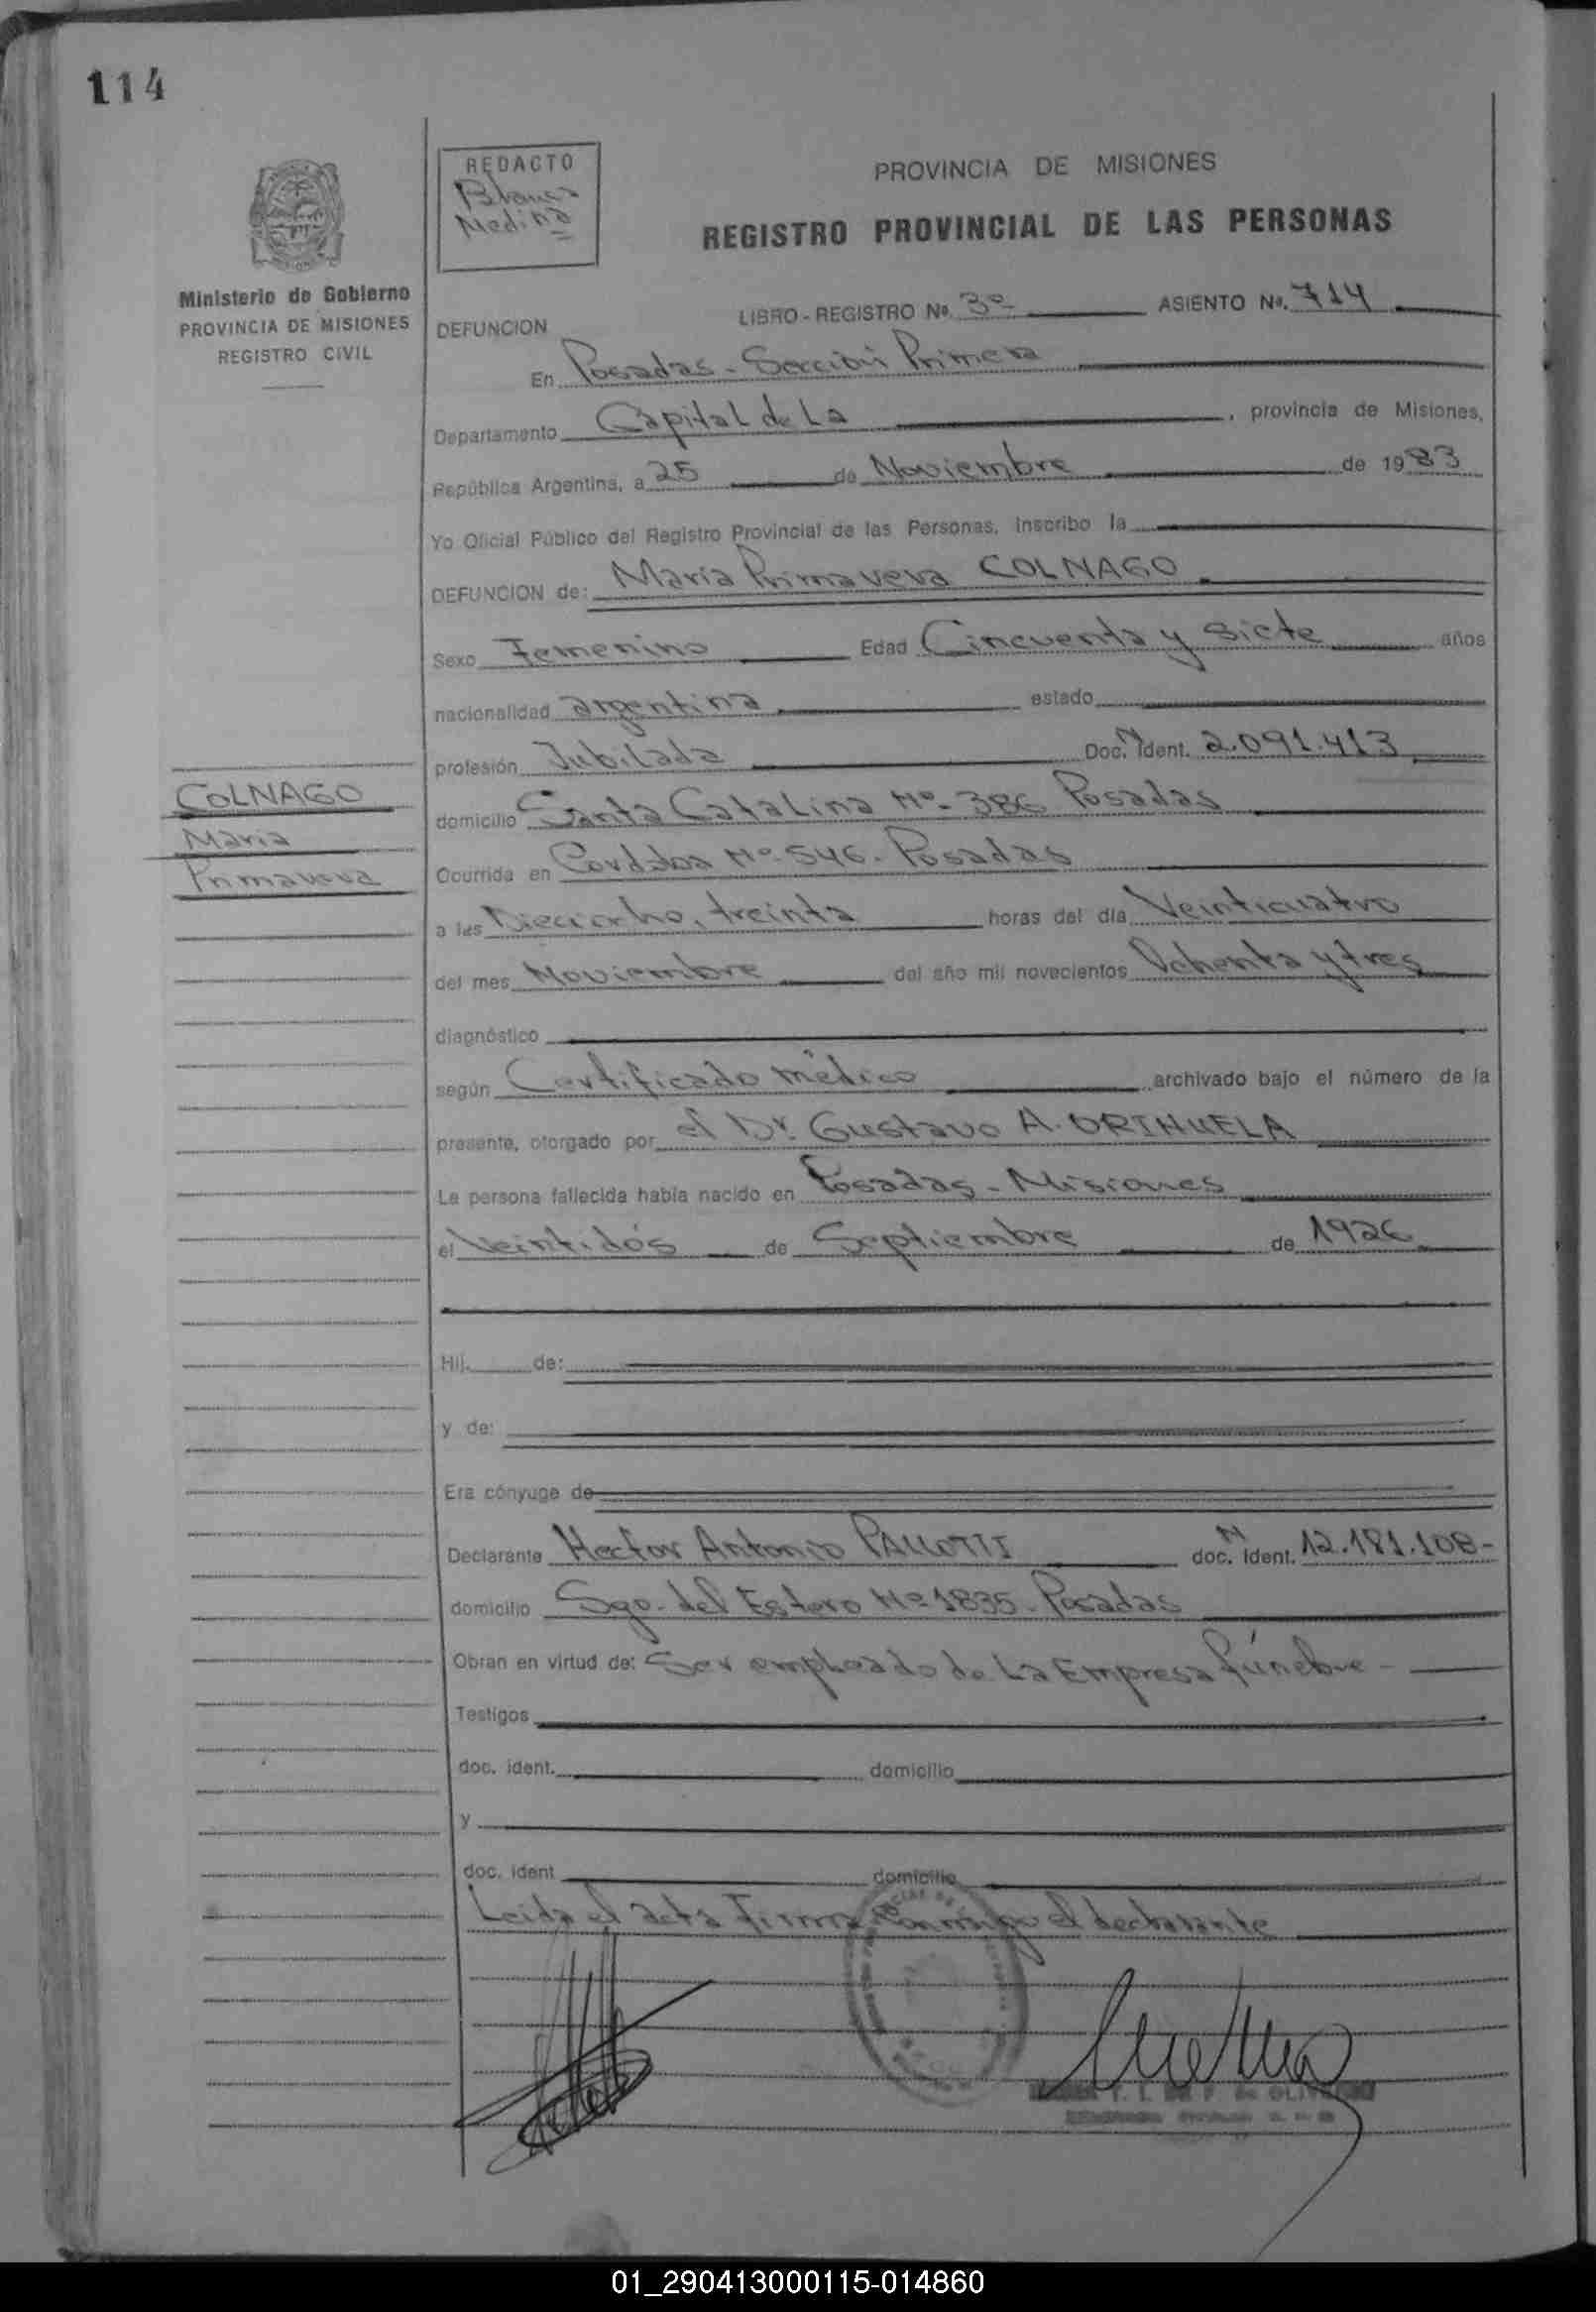 114
REDACTO
Blanca
Medina
PROVINCIA DE MISIONES
REGISTRO PROVINCIAL DE LAS PERSONAS
Ministerio de Gobierno
PROVINCIA DE MISIONES
REGISTRO CIVIL
DEFUNCION
LIBRO - REGISTRO No. 3º ASIENTO No. 714
En Posadas - Sección Primera
Departamento Capital de La , provincia de Misiones,
República Argentina, a 25 de Noviembre de 1983
Yo Oficial Público del Registro Provincial de las Personas, inscribo la
DEFUNCION de: Maria Primavera COLNAGO
Sexo Femenino Edad Cincuenta y siete años
nacionalidad argentina estado
profesión Jubilada Doc. N Ident. 2.091.413
COLNAGO
Maria
Primavera
domicilio Santa Catalina Nº 386 Posadas
Ocurrida en Cordoba Nº 546. Posadas
a las Dieciocho, treinta horas del día Veinticuatro
del mes Noviembre del año mil novecientos Ochenta y tres
diagnóstico
según Certificado médico archivado bajo el número de la
presente, otorgado por el Dr. Gustavo A. ORIHUELA
La persona fallecida había nacido en Posadas - Misiones
el Veintidós de Septiembre de 1926
Hij. de:
y de:
Era cónyuge de
Declarante Hector Antonio PALLOTTI doc. N Ident. 12.181.108-
domicilio Sgo. del Estero Nº 1835. Posadas
Obran en virtud de: Ser empleado de La Empresa fúnebre -
Testigos
doc. ident. domicilio
y
doc. ident domicilio
Leida el acta firma conmigo el declarante
01_290413000115-014860